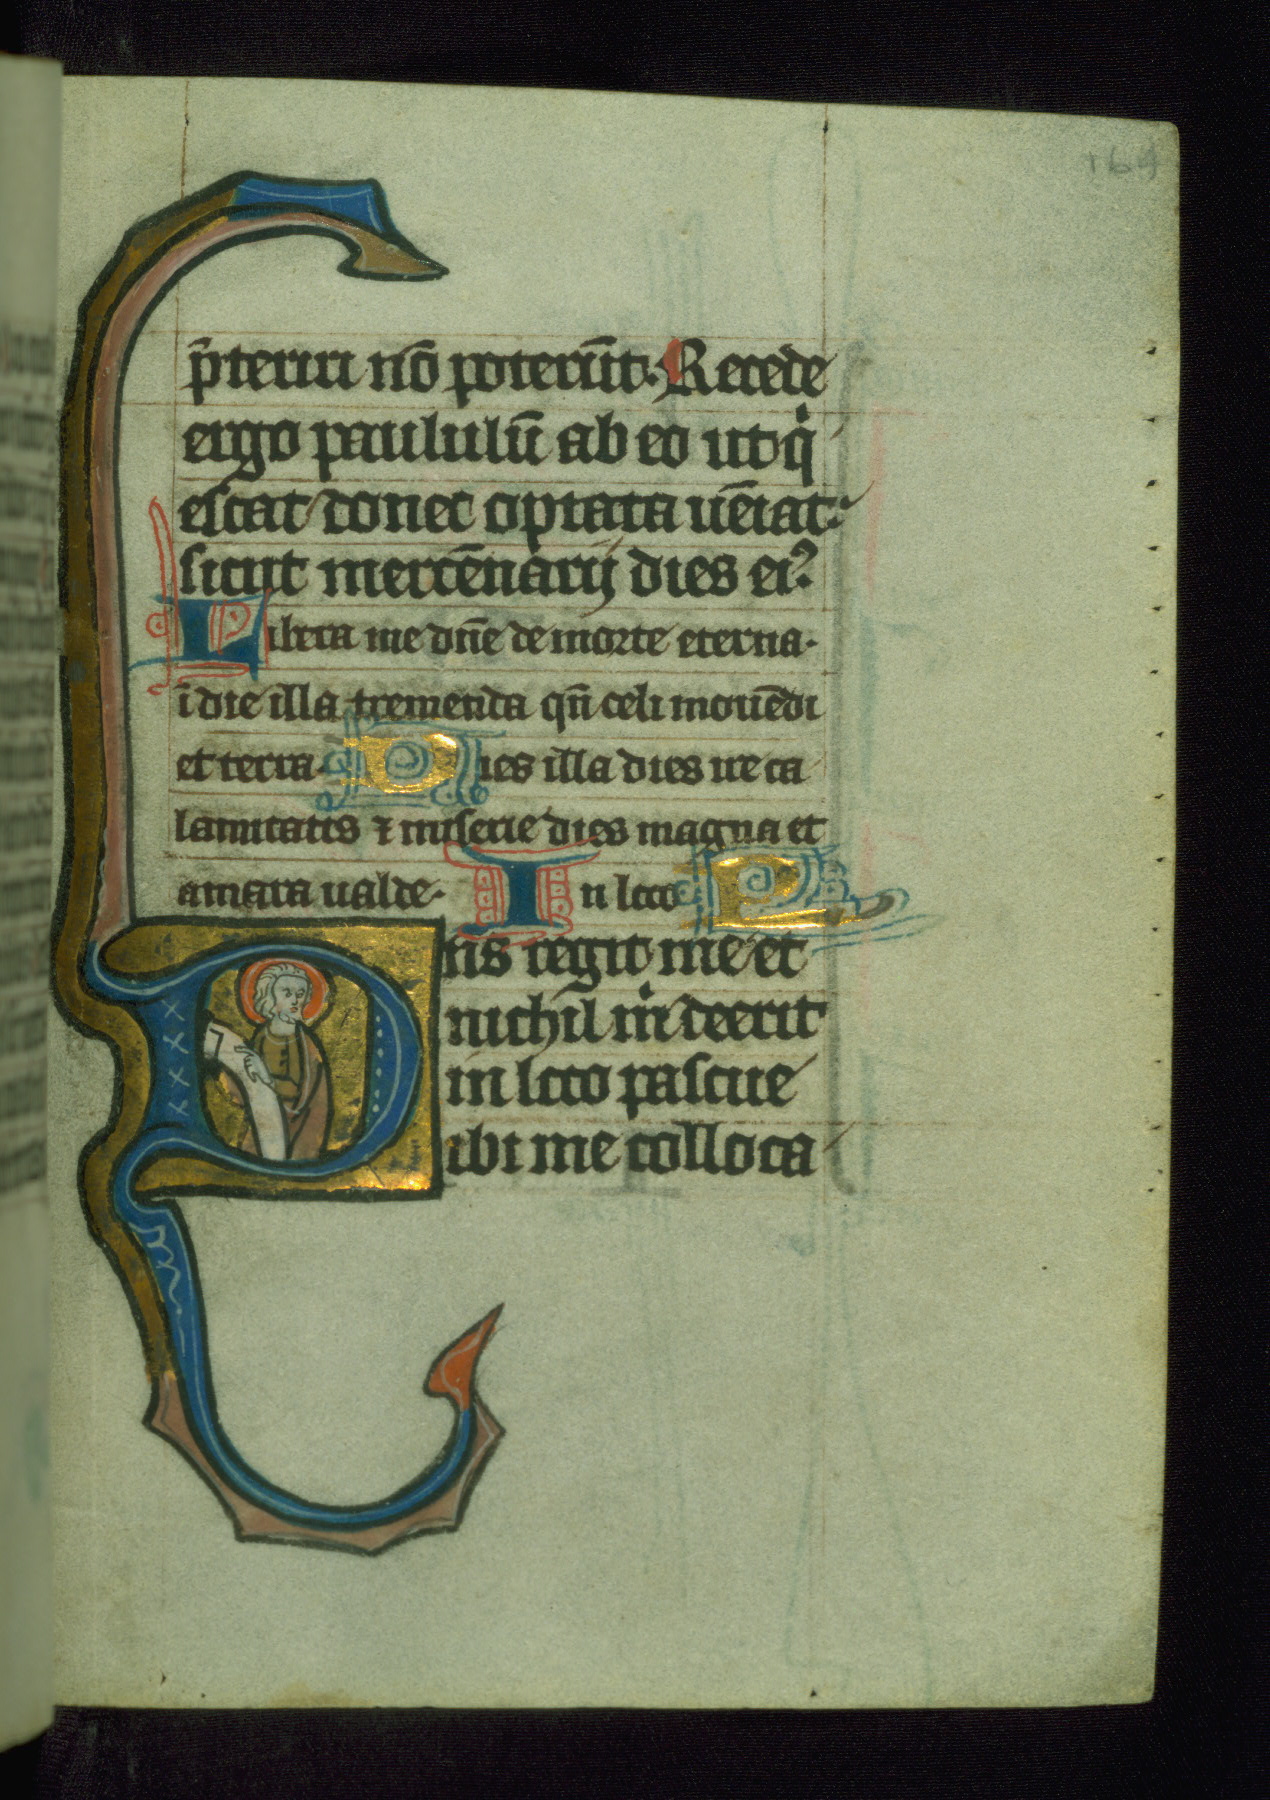 169
p̄teriri nō poterūt. Recede
ergo paululū ab eo ut qⁱ
escat donec optata ūeiat.
sicut mercēnarij dies eiꝰ.
Libera me dn̄e de morte eterna.
ī die illa tremenda qn̄ celi mouēdi
et terra. Dies illa dies ire ca
lamitatis ⁊ miserie dies magna et
amara ualde. In loco P
Dn̄s regit me et
nichil mⁱ deerit
in loco pascue
ibi me colloca